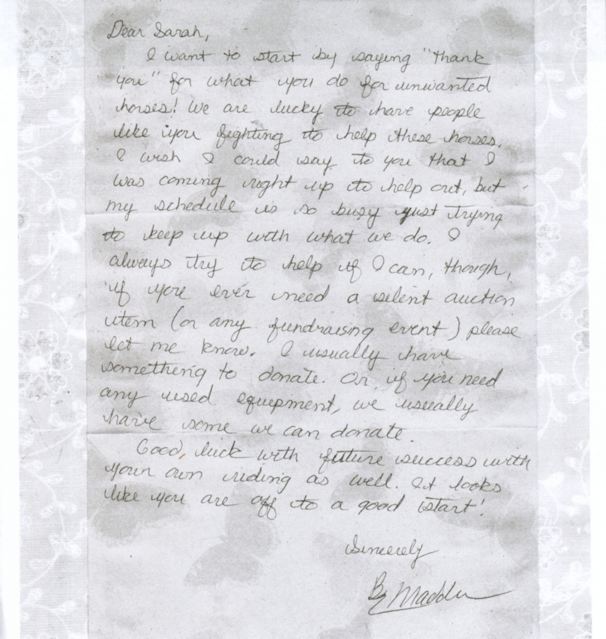 Dear Sarah,
I want to start by saying "thank
you" for what you do for unwanted
horses! We are lucky to have people
like you fighting to help these horses.
I wish I could say to you that I
was coming right up to help out, but
my schedule is so busy just trying
to keep up with what we do. I
always try to help if I can, though,
if you ever need a silent auction
item (or any fundraising event) please
let me know. I usually have
something to donate. Or, if you need
any used equipment, we usually
have some we can donate.
Good, luck with future success with
your own riding as well. It looks
like you are off to a good start!
Sincerely
Madden